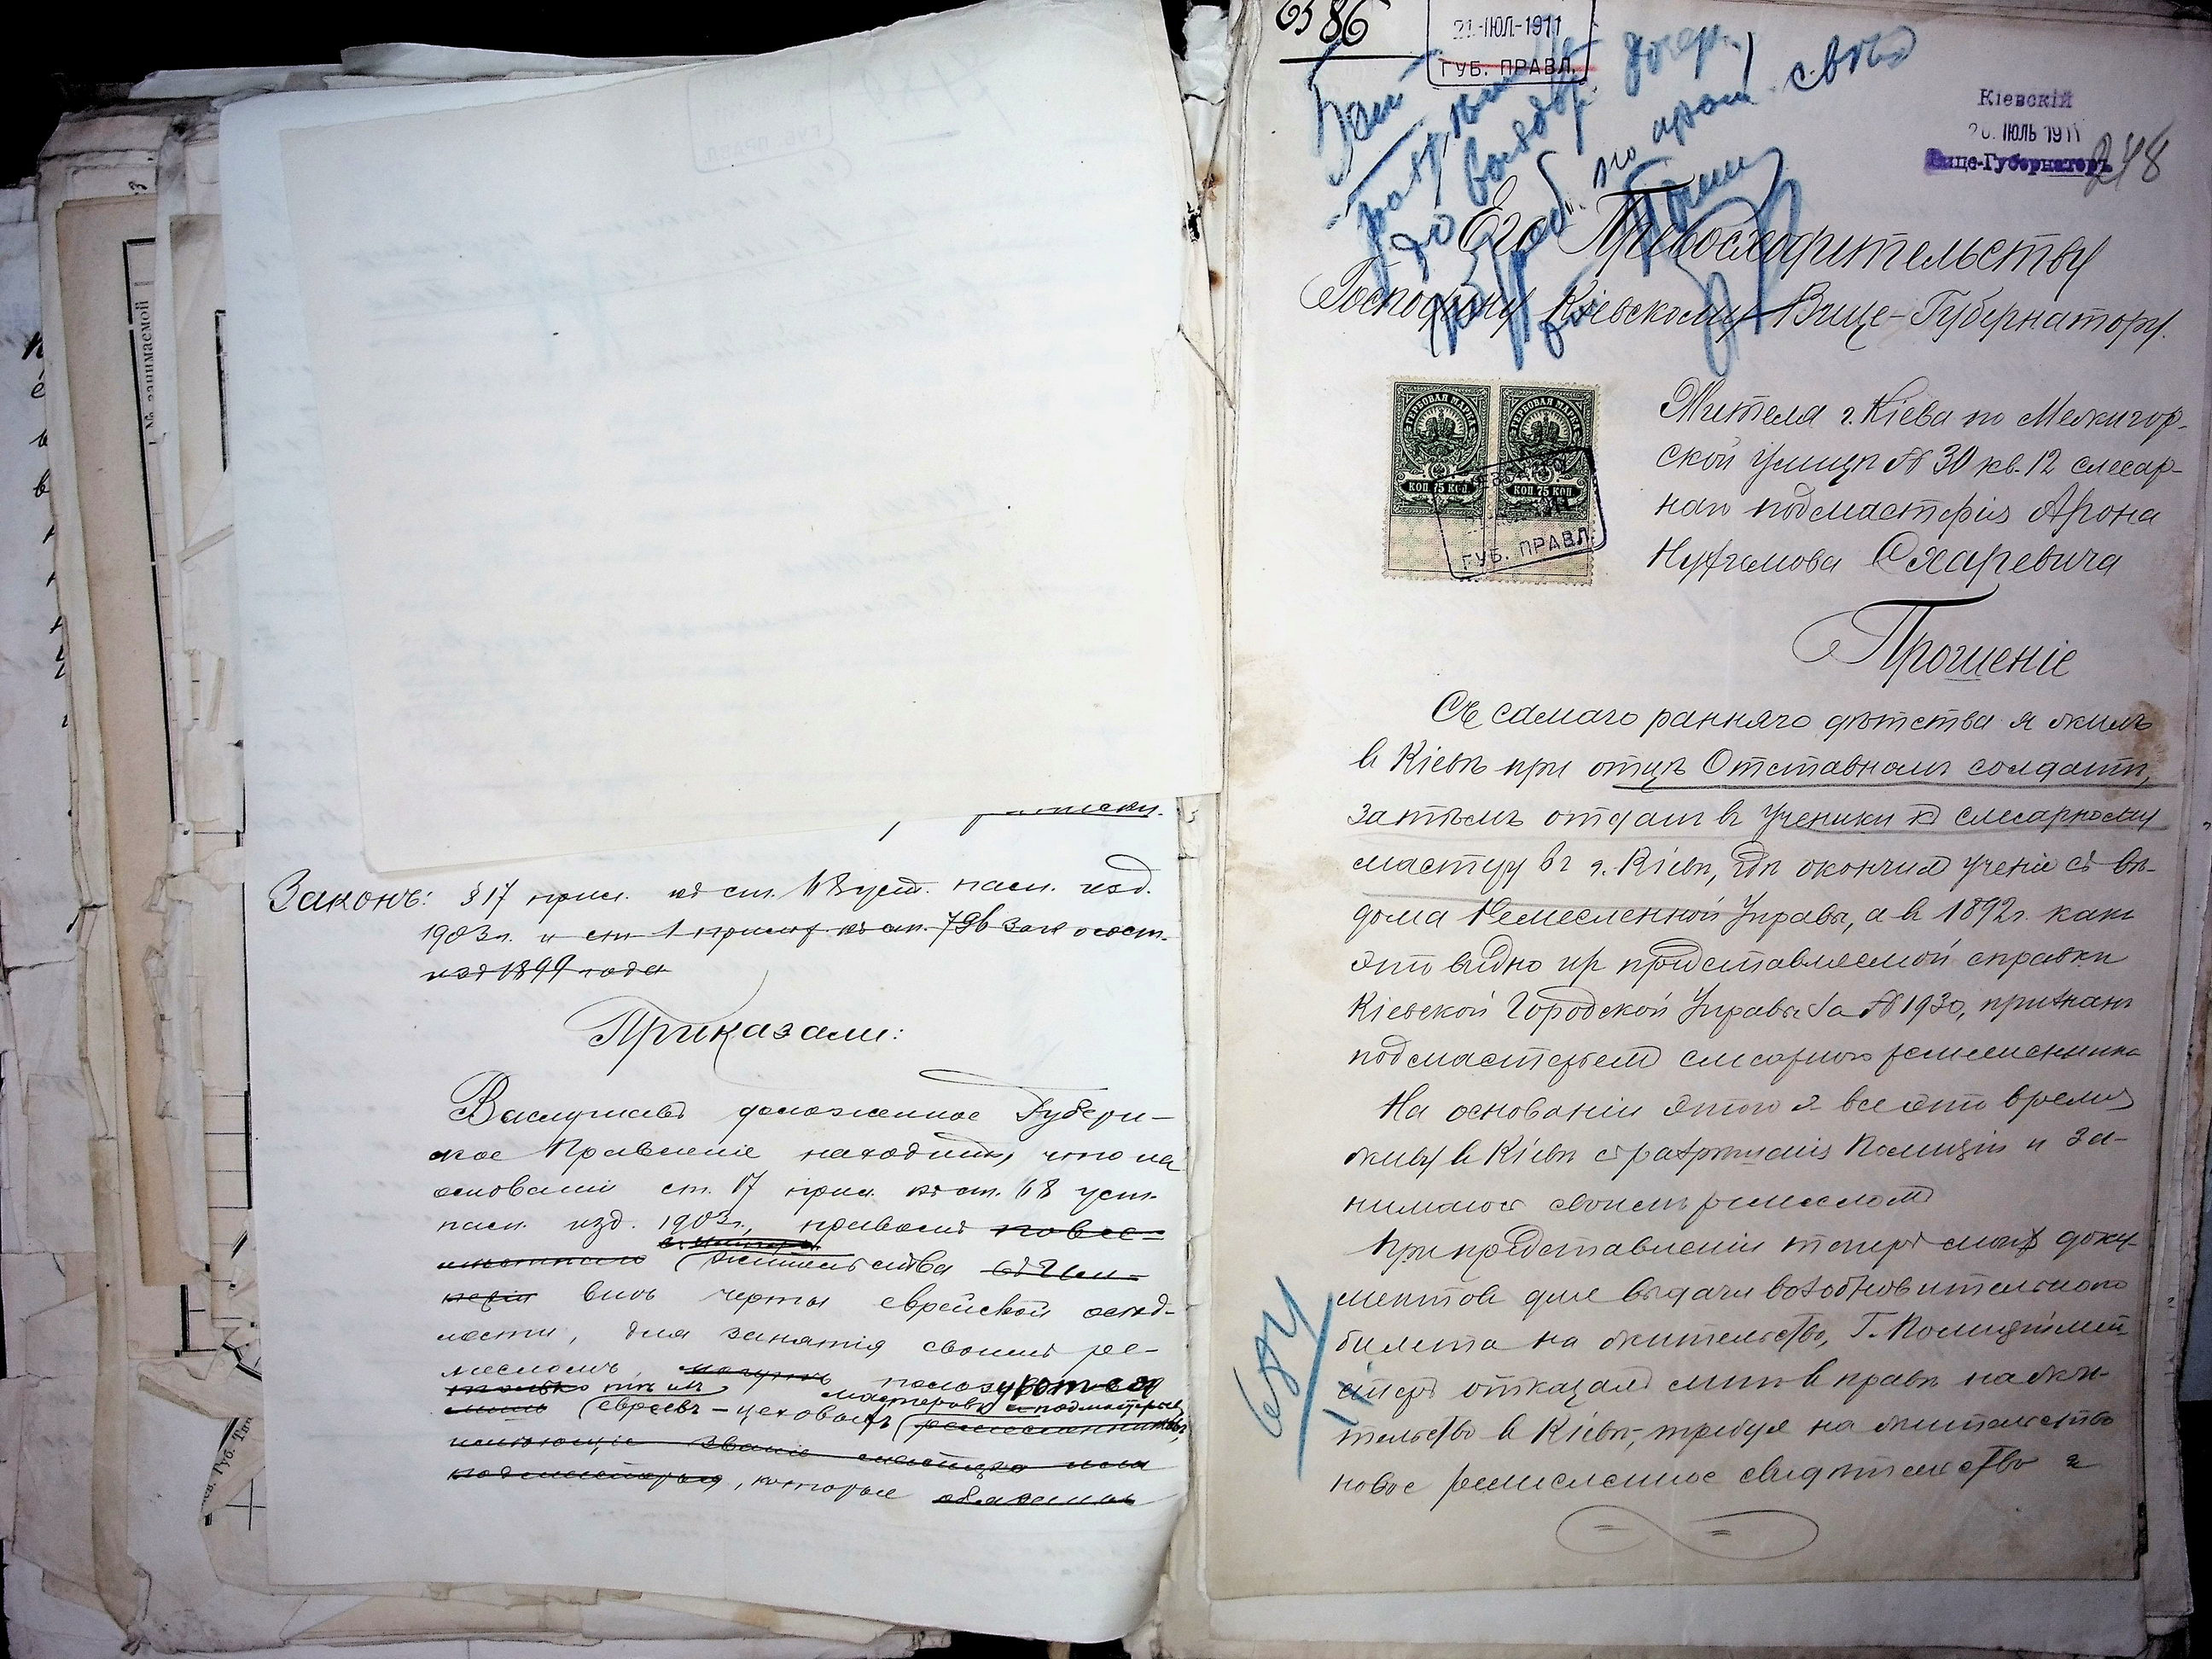 Законъ: § 17 прил. къ ст. 68 уст. пасп. изд.
1903 г. и ст. 1 прилож. къ ст. 798 Зак. о сост.
изд 1899 года
Приказали:
Выслушавъ доложенное Губерн-
ское Правленіе находитъ, что на
основаніи ст. 17 прил. къ ст. 68 уст.
пасп. изд. 1903 г., правомъ повсе-
мѣстнаго жительства въ Им-
періи внѣ черты еврейской осѣд-
лости, для занятія своимъ ре-
месломъ, могутъ пользуются
только тѣ изъ мастеровъ и подмастерьевъ
евреевъ-цеховыхъ ремесленниковъ,
имѣющіе званіе мастера или
подмастерья, которые обязаны
6586
21-ІЮЛ-1911
ГУБ. ПРАВЛ.
Кіевскій
20 ІЮЛЬ 1911
Вице-Губернаторъ
248
Его Превосходительству
Господину Кіевскому Вице-Губернатору.
ГЕРБОВАЯ МАРКА
ГЕРБОВАЯ МАРКА
КОП 75 КОП
КОП 75 КОП
ГУБ. ПРАВЛ.
Жителя г. Кіева по Межигор-
ской улицѣ № 30 кв. 12 слесар-
наго подмастерья Арона
Нухимова Схаревича
Прошеніе
Съ самаго ранняго дѣтства я жилъ
въ Кіевѣ при отцѣ Отставномъ солдатѣ,
затѣмъ отданъ въ ученики къ слесарному
мастеру въ г. Кіевѣ, гдѣ окончилъ ученіе съ вѣ-
дома Ремесленной Управы, а въ 1892 г. какъ
это видно изъ представляемой справки
Кіевской Городской Управы за № 1930, признанъ
подмастерьемъ слесарнаго ремесленника
На основаніи этого я все это время
живу въ Кіевѣ съ разрѣшенія Полиціи и за-
нимаюсь своимъ ремесломъ
При представленіи теперь моихъ доку-
ментовъ для выдачи возобновительнаго
билета на жительство, Г. Полиціймей-
стеръ отказалъ мнѣ въ правѣ на жи-
тельство въ Кіевѣ, требуя на жительство
новое ремесленное свидѣтельство а